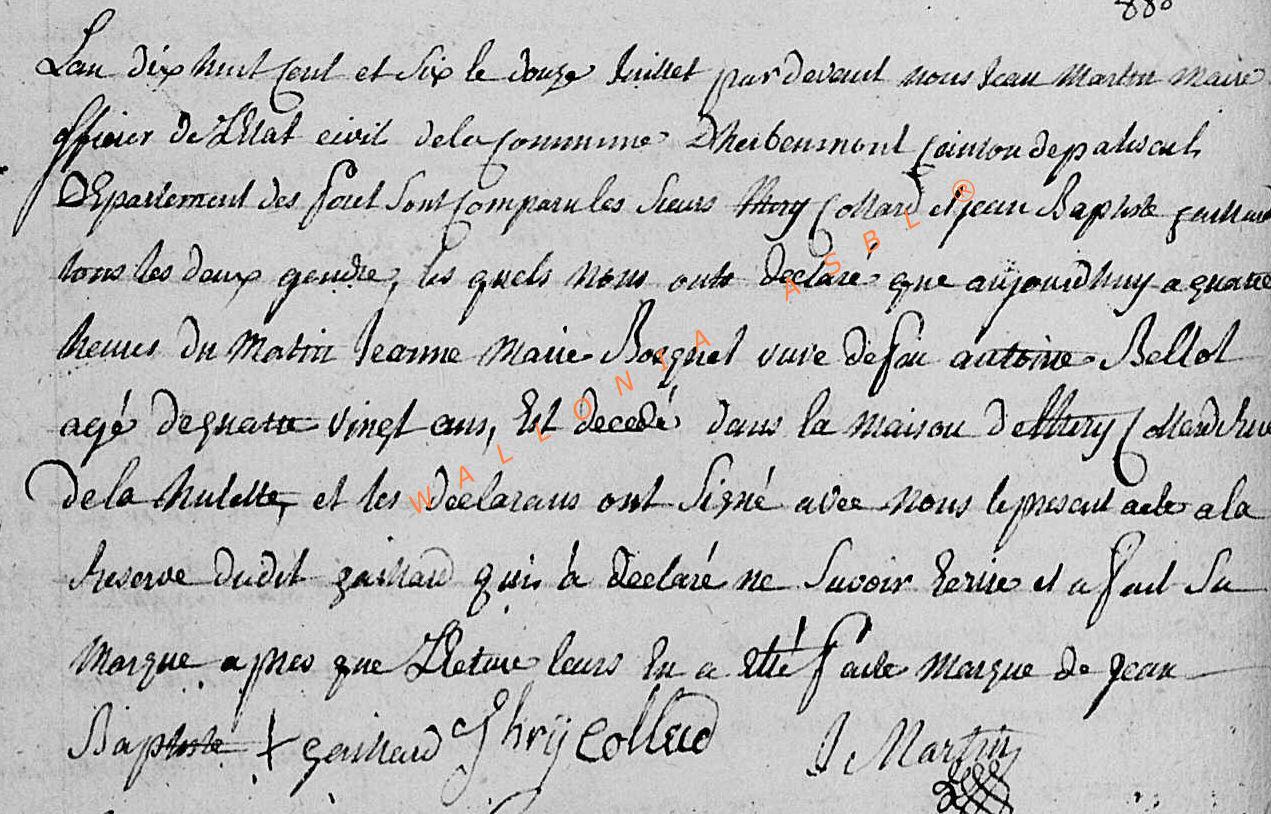 880
Lan dix huit Cent et Six le douze Juillet pardevant nous Jean Martin Maire
officier de LEtat civil dela Commune Dherbeumont Canton depaliseul
DEpartement des foret Sont Comparu les Sieurs thiry Collard et jean Baptiste gaillard
tous les deux gendre, les quels nous onts declaré que aujourdhuy a quatre
heures du Matin Jeanne Marie Bocquet vuve defeu antoine Bellot
agé dequatre vingt ans, Est decedé dans la maison dethiry Collard Rue
de la hulette, et les declarans ont Signé avec nous le present acte a la
Reserve dudit gaillard qui à declaré ne Savoir Ecrire et a fait Sa
Marque apres que LLecture leurs En a Etté faite Marque de jean
Baptiste + gaillard Thiry Collard J Martin
WALLONIA ASBL ®